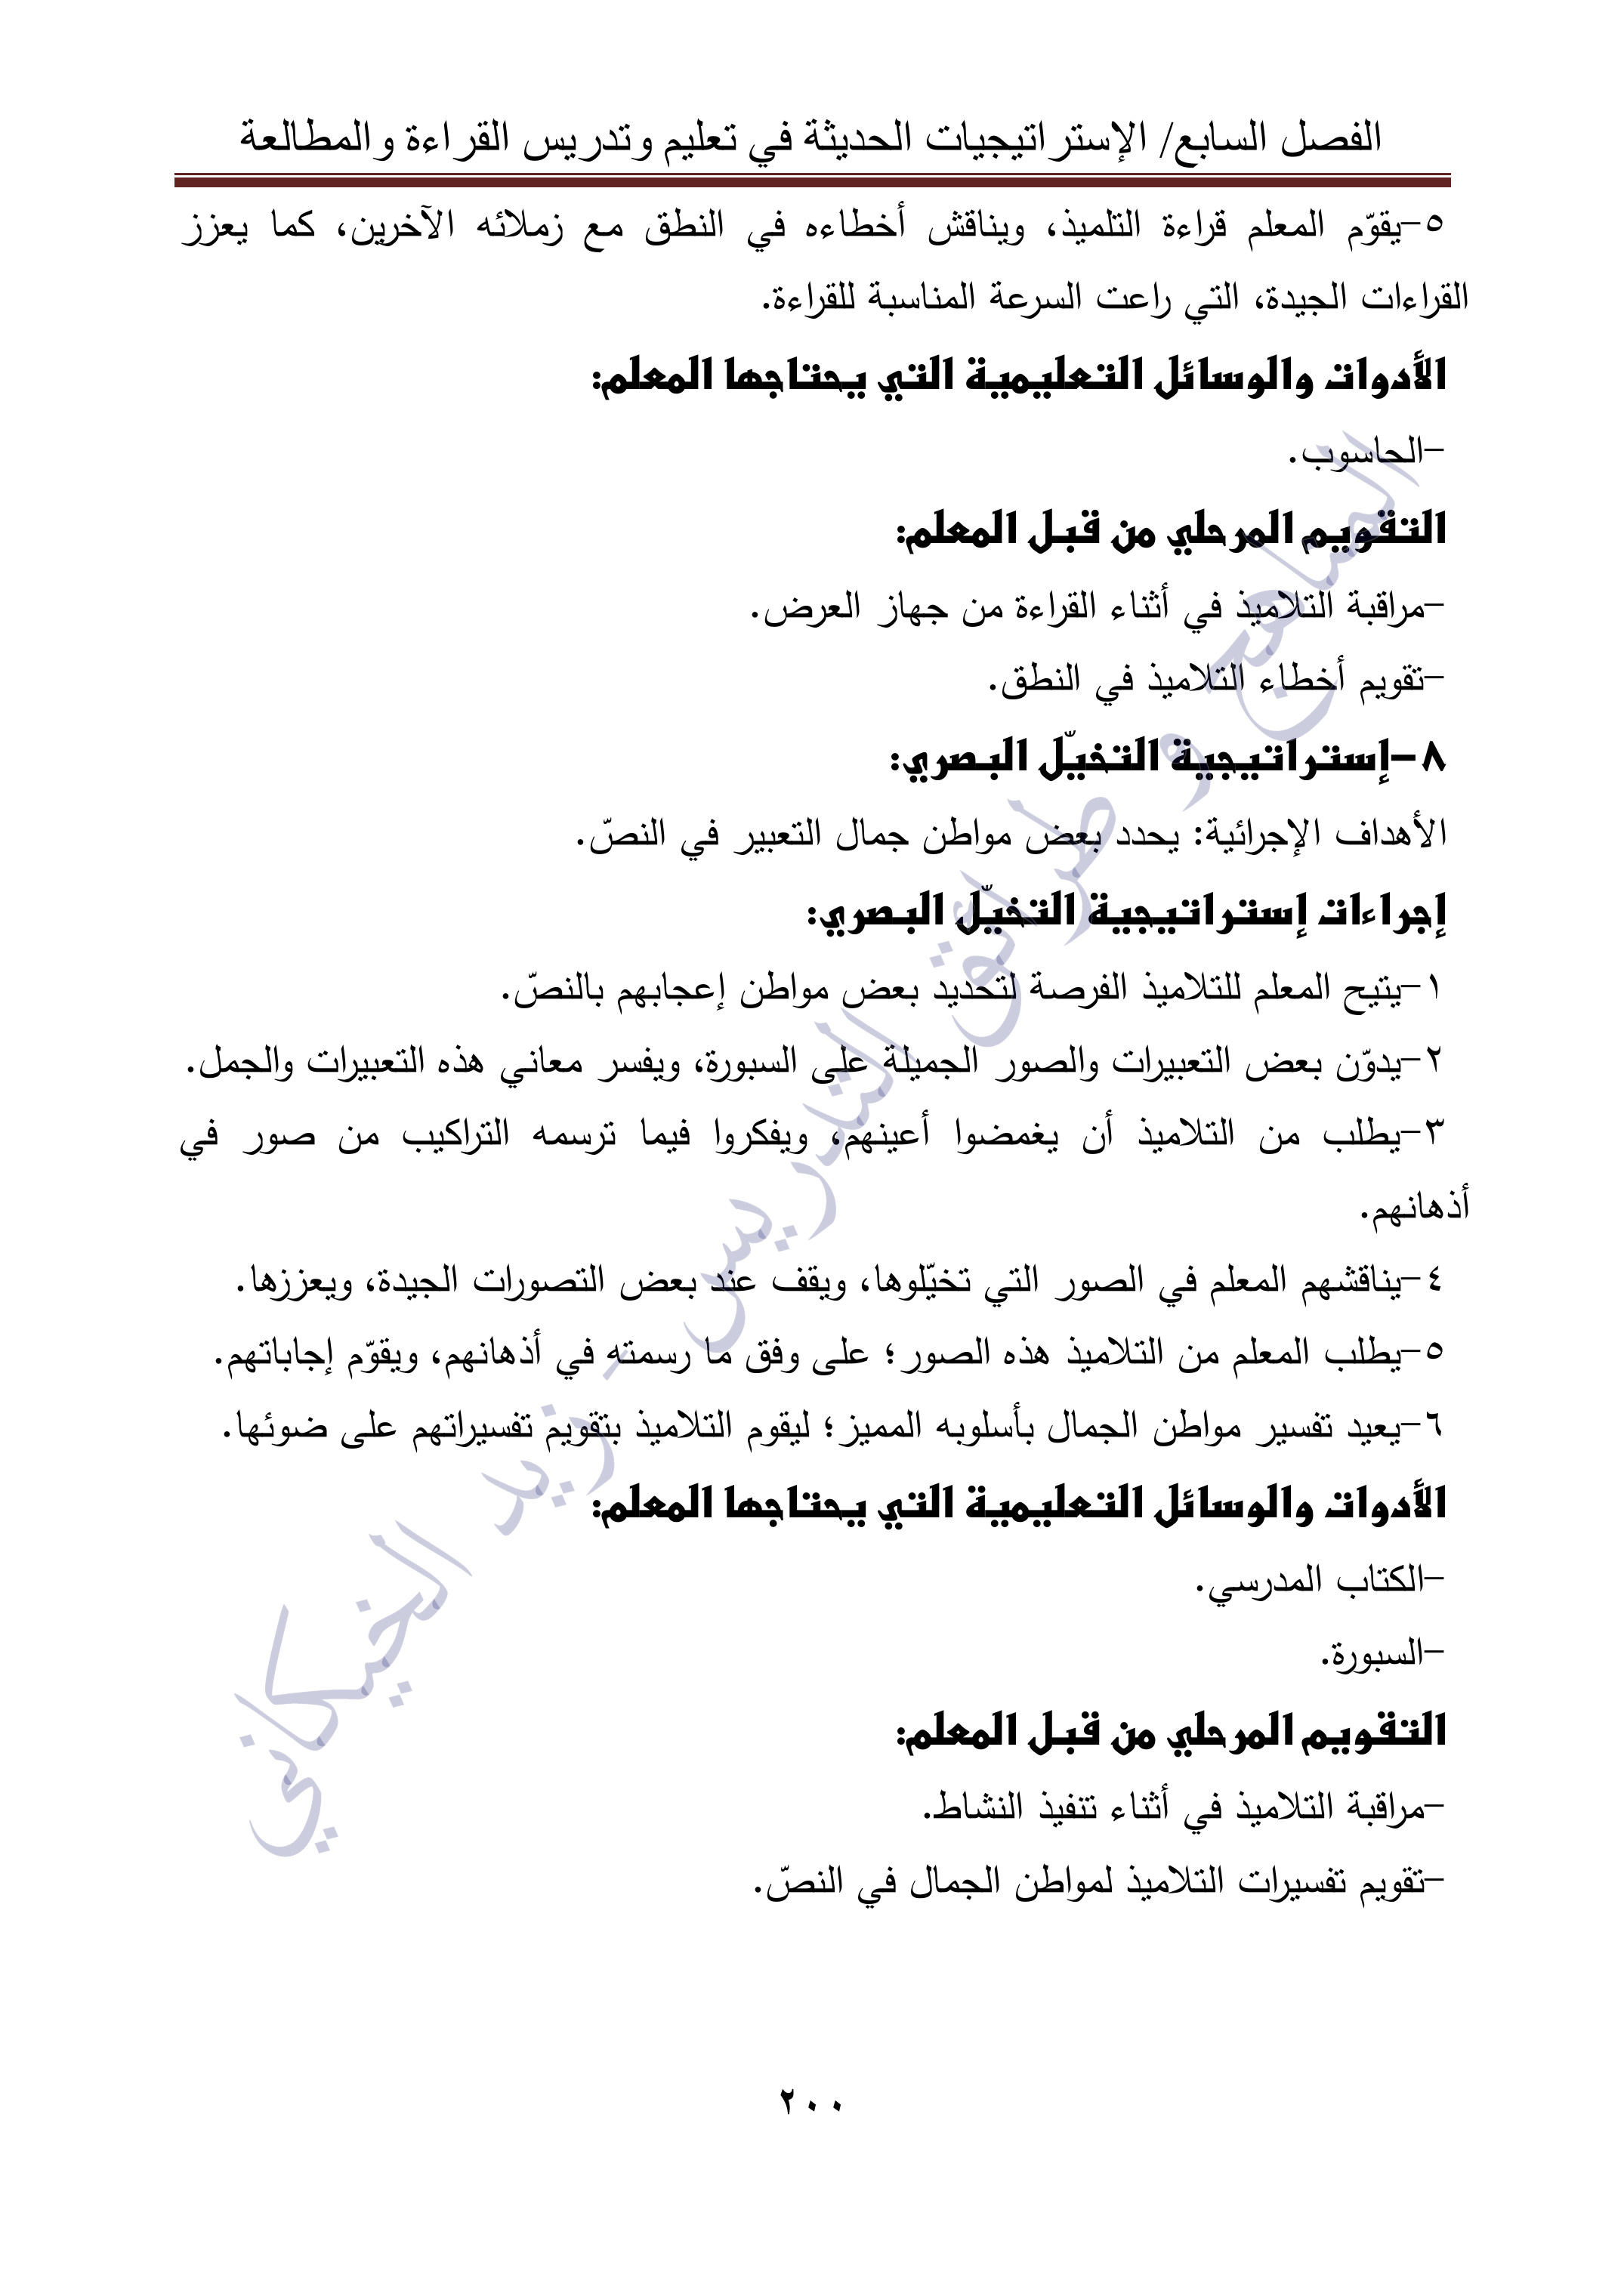 الفصل السابع/ الإستراتيجيات الحديثة في تعليم وتدريس القراءة والمطالعة
٥-يقوّم المعلم قراءة التلميذ، ويناقش أخطاءه في النطق مع زملائه الآخرين، كما يعزز
القراءات الجيدة، التي راعت السرعة المناسبة للقراءة.
الأدوات والوسائل التعليمية التي يحتاجها المعلم:
-الحاسوب.
التقويم المرحلي من قبل المعلم:
-مراقبة التلاميذ في أثناء القراءة من جهاز العرض.
-تقويم أخطاء التلاميذ في النطق.
٨-إستراتيجية التخيّل البصري:
الأهداف الإجرائية: يحدد بعض مواطن جمال التعبير في النصّ.
إجراءات إستراتيجية التخيّل البصري:
١-يتيح المعلم للتلاميذ الفرصة لتحديد بعض مواطن إعجابهم بالنصّ.
٢-يدوّن بعض التعبيرات والصور الجميلة على السبورة، ويفسر معاني هذه التعبيرات والجمل.
٣-يطلب من التلاميذ أن يغمضوا أعينهم، ويفكروا فيما ترسمه التراكيب من صور في
أذهانهم.
٤-يناقشهم المعلم في الصور التي تخيّلوها، ويقف عند بعض التصورات الجيدة، ويعززها.
٥-يطلب المعلم من التلاميذ هذه الصور؛ على وفق ما رسمته في أذهانهم، ويقوّم إجاباتهم.
٦-يعيد تفسير مواطن الجمال بأسلوبه المميز؛ ليقوم التلاميذ بتقويم تفسيراتهم على ضوئها.
الأدوات والوسائل التعليمية التي يحتاجها المعلم:
-الكتاب المدرسي.
-السبورة.
التقويم المرحلي من قبل المعلم:
-مراقبة التلاميذ في أثناء تنفيذ النشاط.
-تقويم تفسيرات التلاميذ لمواطن الجمال في النصّ.
٢٠٠
المناهج و طرائق التدريس - زيد الخيكاني